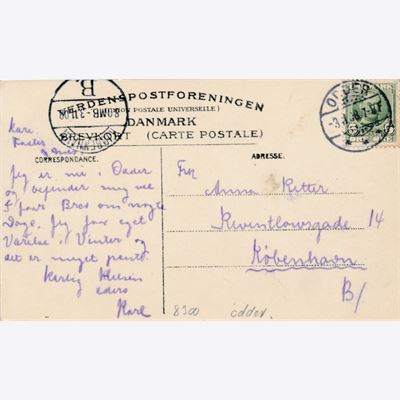 VERDENSPOSTFORENINGEN
(UNION POSTALE UNIVERSELLE)
DANMARK
BREVKORT (CARTE POSTALE.)
B.
8.OMB - 3.11.08
KJØBENHAVN
ODDER
CORRESPONDANCE.
ADRESSE.
Kære
Jeg er nu i Odder
og befinder mig vel
5 paar Brev om nogle
Dage. Jeg har eget
Værelse i Vinter og
det er meget pænt.
Kærlig Hilsen
eders
Karl
Frk
Anna Ritter
Reventlowsgade 14
København
B/
8300 odder.